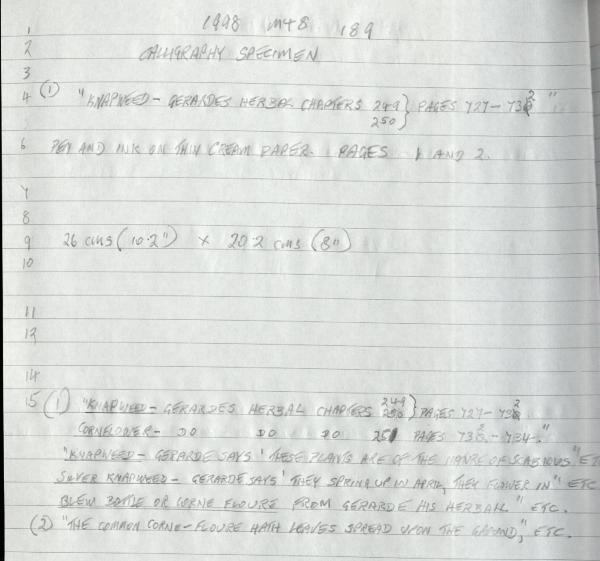 1998 M+8 189
1
2 CALLIGRAPHY SPECIMEN
3
4 (1) "KNAPWEED - GERARDES HERBAL CHAPTERS 249 } PAGES 727-732"
250
6 PEN AND INK ON THIN CREAM PAPER. PAGES 1 AND 2.
7
8
9 26 cms (10.2") x 20.2 cms (8")
10
11
12
14
15 (1) "KNAPWEED - GERARDES HERBAL CHAPTERS 249 250 } PAGES 727-732
CORNFLOWER - DO DO DO 251 PAGES 732-734."
"KNAPWEED - GERARDE SAYS 'THESE PLANTS ARE OF THE NATURE OF SCABIOUS" ETC
SILVER KNAPWEED - GERARDE SAYS 'THEY SPRING UP IN APRIL, THEY FLOWER IN" ETC
BLEW BOTTLE OR CORNE FLOURE FROM GERARDE HIS HERBALL" ETC.
(2) "THE COMMON CORNE-FLOURE HATH LEAVES SPREAD UPON THE GROUND," ETC.